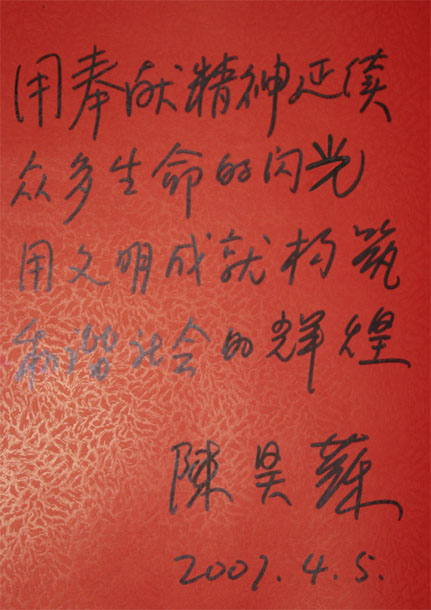 用奉献精神延续
众多生命的闪光
用文明成就构筑
和谐社会的辉煌
陳昊蘇
2007.4.5.